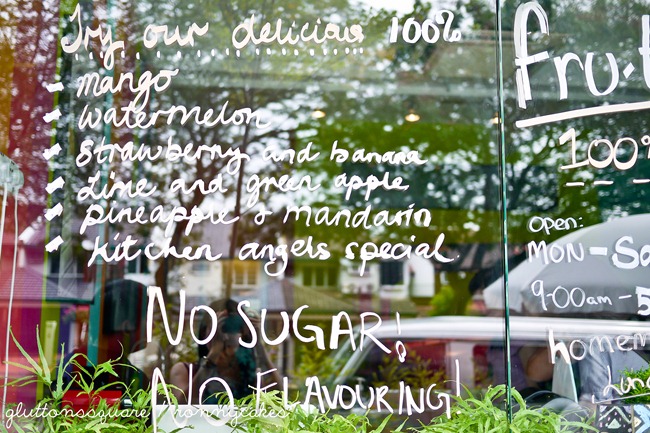 Try our delicious 100%
- mango
- watermelon
- Strawberry and banana
- Lime and green apple
- pineapple & mandarin
- kitchen angels special.
NO SUGAR!
NO FLAVOURING!
fru
100%
Open:
MON-Sa
9.00am - 5
homem
gluttonssquare / ronnycakes